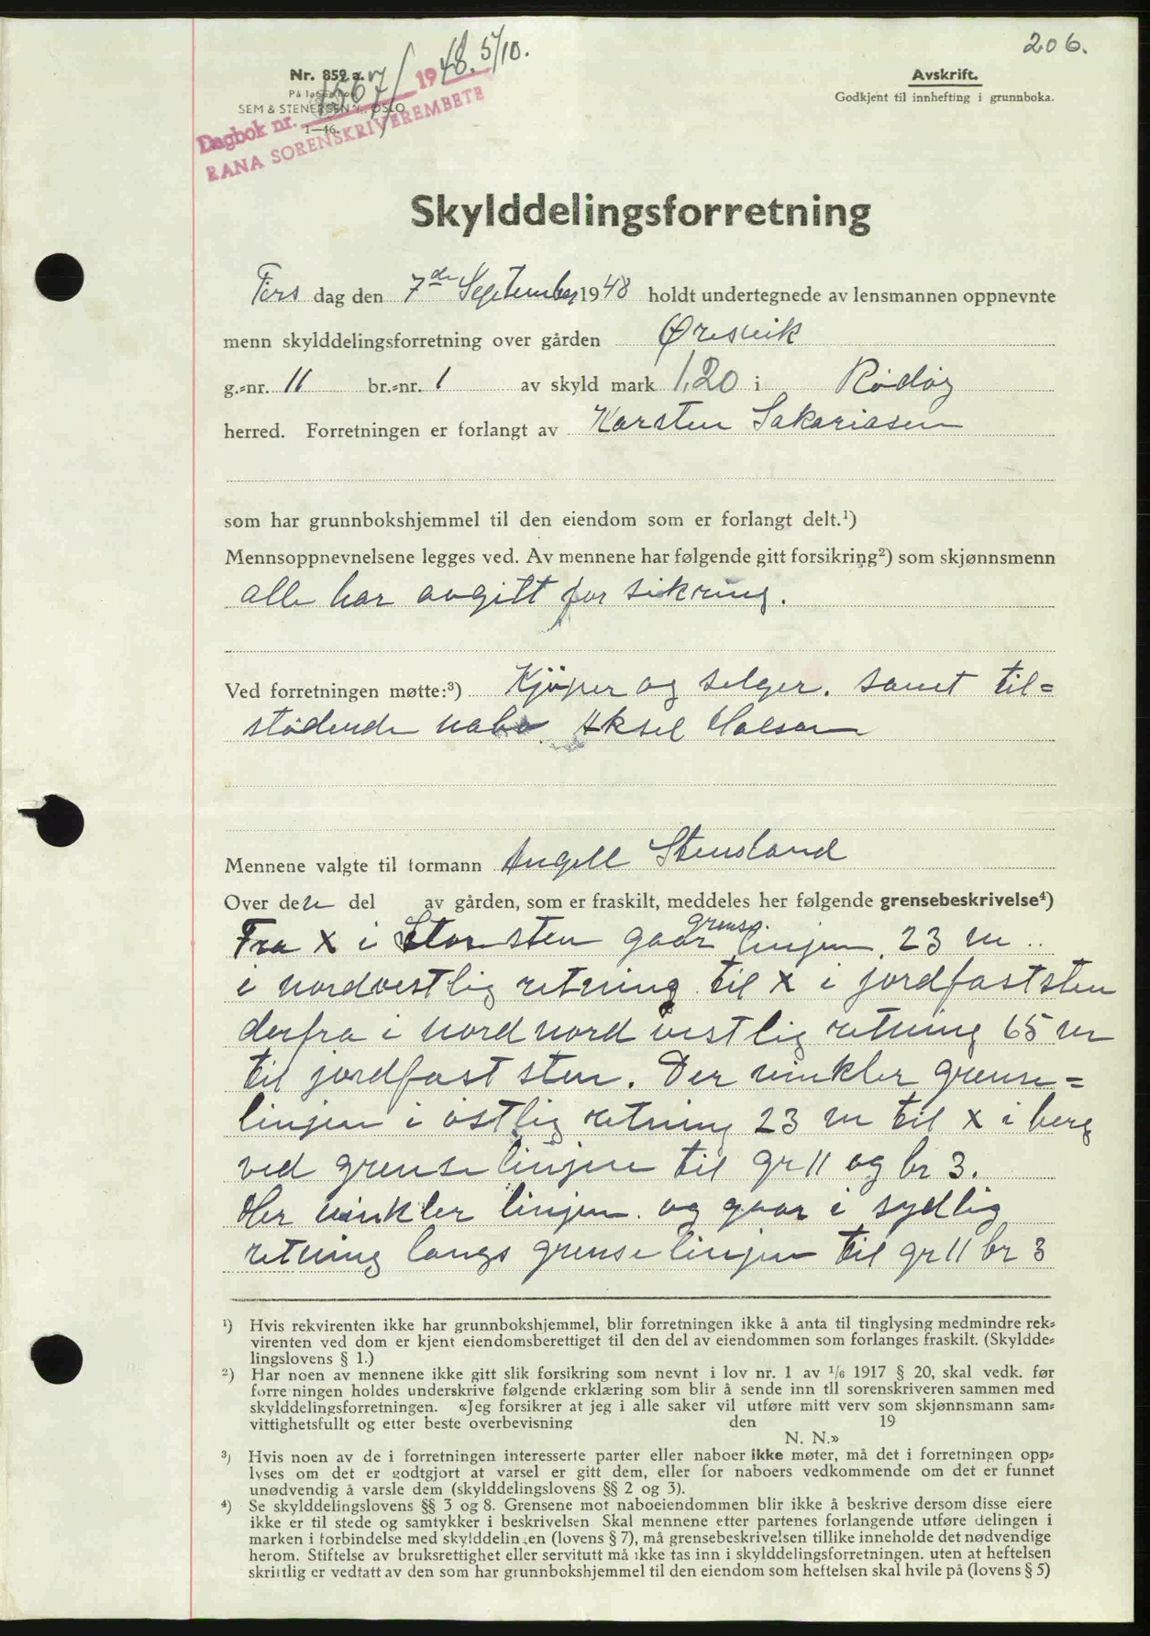 206.
Nr. 859 a.
1948. 5/10.
Avskrift.
Godkjent til innhefting i grunnboka.
SEM & STENERSEN A/S, OSLO
1—46.
Dagbok nr.
RANA SORENSKRIVEREMBETE
Skylddelingsforretning
Tirs dag den 7de September 1948 holdt undertegnede av lensmannen oppnevnte
menn skylddelingsforretning over gården Øresvik
g.=nr. 11 br.=nr. 1 av skyld mark 1,20 i Rødøy
herred. Forretningen er forlangt av Karsten Sakariasen
som har grunnbokshjemmel til den eiendom som er forlangt delt.¹)
Mennsoppnevnelsene legges ved. Av mennene har følgende gitt forsikring²) som skjønnsmenn
alle har avgitt for sikring.
Ved forretningen møtte:³) Kjöper og selger. samt til=
stödende nabo Aksel Halsan
Mennene valgte til formann Angell Stensland
Over den del av gården, som er fraskilt, meddeles her følgende grensebeskrivelse⁴)
Fra x i Stor sten gaar grense linjen 23 m ..
i nordvestlig retning til x i jordfaststen
derfra i nord nord vestlig retning 65 m
til jordfast sten. Der vinkler grense=
linjen i östlig retning 23 m til x i berg
ved grense linjen til gr 11 og br 3.
Her vinkler linjen og gaar i sydlig
retning langs grense linjen til gr 11 br 3
¹) Hvis rekvirenten ikke har grunnbokshjemmel, blir forretningen ikke å anta til tinglysing medmindre rek=
virenten ved dom er kjent eiendomsberettiget til den del av eiendommen som forlanges fraskilt. (Skyldde=
lingslovens § 1.)
²) Har noen av mennene ikke gitt slik forsikring som nevnt i lov nr. 1 av 1/6 1917 § 20, skal vedk. før
forretningen holdes underskrive følgende erklæring som blir å sende inn til sorenskriveren sammen med
skylddelingsforretningen. «Jeg forsikrer at jeg i alle saker vil utføre mitt verv som skjønnsmann sam=
vittighetsfullt og etter beste overbevisning den 19
N. N.»
³) Hvis noen av de i forretningen interesserte parter eller naboer ikke møter, må det i forretningen opp=
lyses om det er godtgjort at varsel er gitt dem, eller for naboers vedkommende om det er funnet
unødvendig å varsle dem (skylddelingslovens §§ 2 og 3).
⁴) Se skylddelingslovens §§ 3 og 8. Grensene mot naboeiendommen blir ikke å beskrive dersom disse eiere
ikke er til stede og samtykker i beskrivelsen Skal mennene etter partenes forlangende utføre delingen i
marken i forbindelse med skylddelingen (lovens § 7), må grensebeskrivelsen tillike inneholde det nødvendige
herom. Stiftelse av bruksrettighet eller servitutt må ikke tas inn i skylddelingsforretningen. uten at heftelsen
skriftlig er vedtatt av den som har grunnbokshjemmel til den eiendom som heftelsen skal hvile på (lovens § 5)